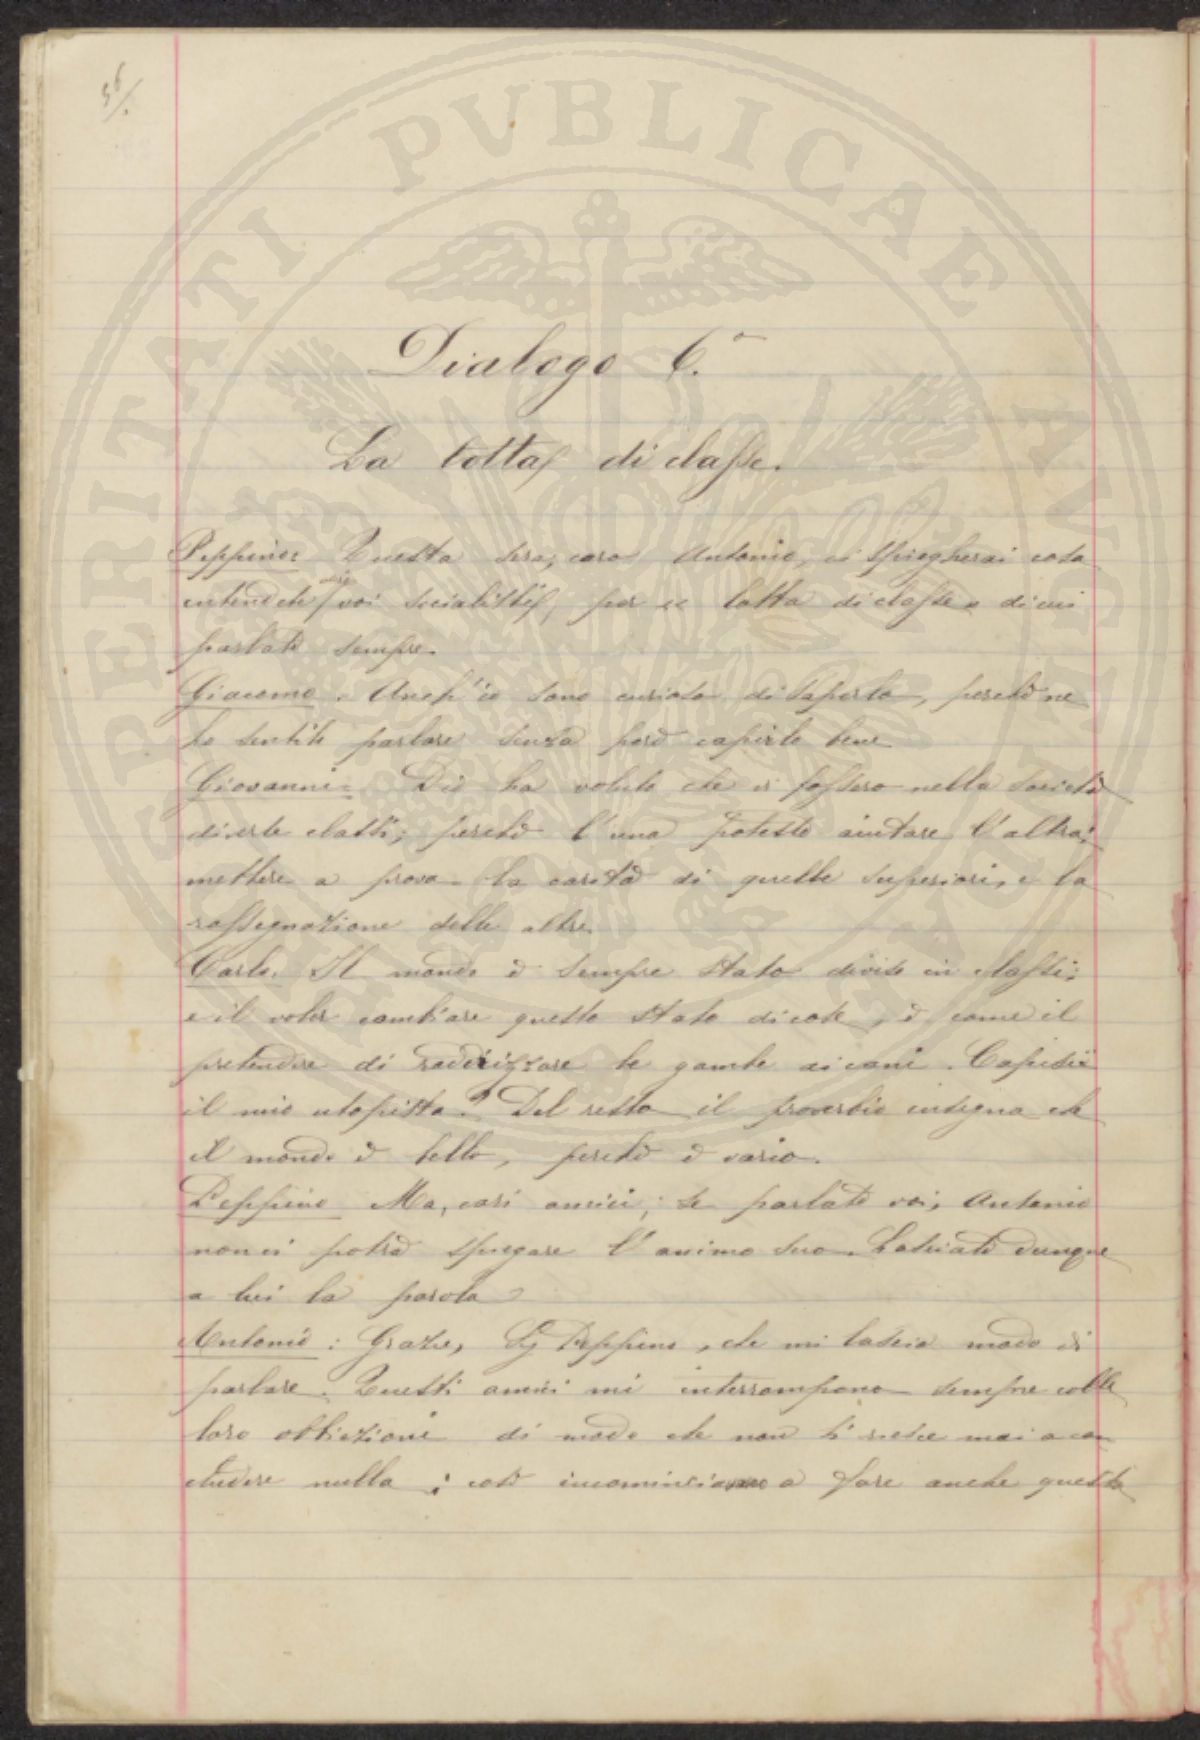 56/.
Dialogo 6.º
La lotta di classe.
Peppino: Questa sera, caro Antonio, ci spiegherai cosa
intendete voi socialisti, per la lotta di classe, di cui
parlate sempre.
Giacomo. Anch'io sono curioso di saperlo, perchè ne
ho sentito parlare senza però capirlo bene
Giovanni. Dio ha voluto che vi fossero nella società
diverse classi; perchè l'una potesse aiutare l'altra;
mettere a prova la carità di quelle superiori, e la
rassegnazione delle altre.
Carlo. Il mondo è sempre stato diviso in classi;
e il voler cambiare questo stato di cose, è come il
pretendere di raddrizzare le gambe ai cani. Capisci
il mio utopista? Del resto il proverbio insegna che
il mondo è bello, perchè è vario.
Peppino Ma, cari amici, se parlate voi, Antonio
non ci potrà spiegare l'animo suo. Lasciate dunque
a lui la parola
Antonio: Grazie, Sig Peppino, che mi lascia modo di
parlare. Questi amici mi interrompono sempre colle
loro obbiezioni di modo che non si riesce mai a con
cludere nulla; così incominciano a fare anche questa
PERITATI PUBLICAE